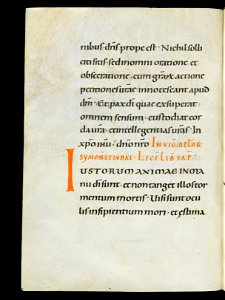 nibus · dn̄s prope est · Nichil solli
citi sitis · sed in omni oratione et
obsecratione · cum gratiarū actione
petitiones urae innotescant apud
dm̄ · Et pax dī quae exuperat
omnem sensum · custodiat cor
da urā · et intellegentias urās · In
xpo ihū · dn̄o nr̄o
Lec̄ Lib̄ sap̄
IUSTORUM ANIMAE IN DEI MA
nu dī sunt · et non tanget illos tor
mentum mortis · Visi sunt ocu
lis insipientium mori · et estima